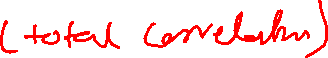 (total correlation)